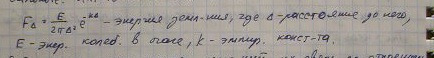 F_Δ = E/(2πΔ²) e^(-kΔ) - энергия земл-ния, где Δ-расстояние до него,
E - энер. колеб. в очаге, k - эмпир. конст-та.